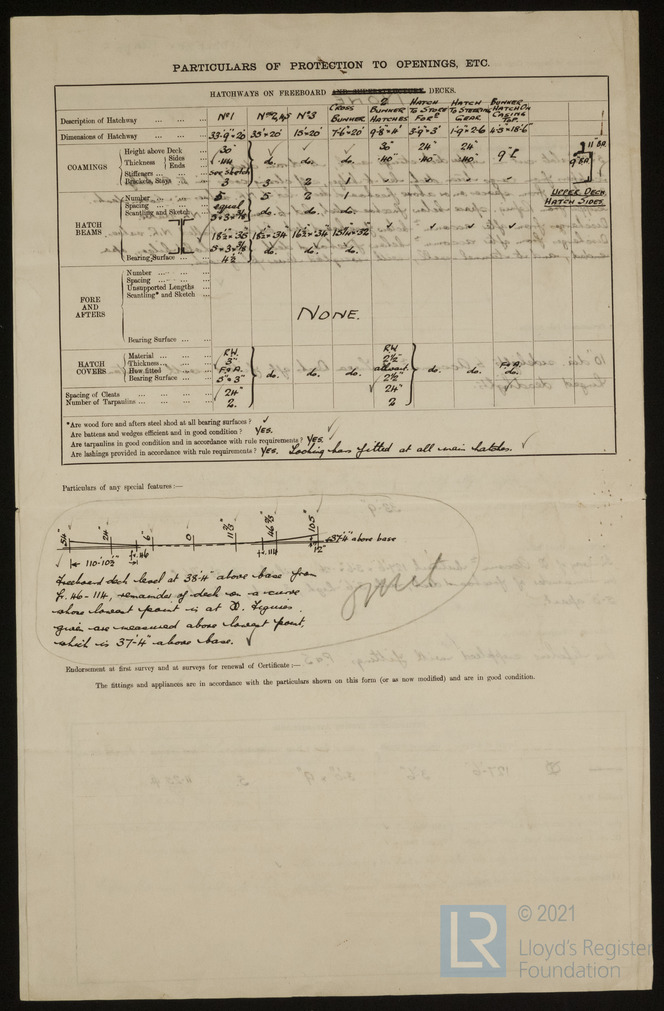 PARTICULARS OF PROTECTION TO OPENINGS, ETC.
HATCHWAYS ON FREEBOARD AND SUPERSTRUCTURE DECKS.
Description of Hatchway ... ... ... Nº1 Nºs 2,4,5 Nº3 CROSS BUNKER 2 BUNKER HATCHES HATCH TO STORE FORD HATCH TO STEERING GEAR BUNKER HATCH ON CASING TOP
Dimensions of Hatchway ... ... ... 33'-9"×20' 35'×20' 15'×20' 7'-6"×20' 9'-8"×4' 3'-9"×3' 1'-9"×2'-6 4'-3"×18'-6"
COAMINGS
Height above Deck ... 30" 30" 24" 24"
Thickness Sides Ends ... .44 do. do. do. .40 .40 .40 9" 11" BA 9" BA
Stiffeners ... see sketch
Brackets, Stays ... 3 3 2 1
UPPER DECK
HATCH SIDES
HATCH BEAMS
Number ... ... ... 5 5 2 1
Spacing ... ... ... equal
Scantling and Sketch do. do. do.
18½×.36 18½×.34 16½×.34
do. do. do.
Bearing Surface ... 4½
FORE AND AFTERS
Number ... ... ...
Spacing ... ... ...
Unsupported Lengths ...
Scantling* and Sketch ...
NONE.
Bearing Surface ... ...
HATCH COVERS
Material ... ... ... R.W. R.W.
Thickness ... ... ... 3" 2½"
How fitted ... ... F & A. do. do. do. athwart. do. do. F & A. do.
Bearing Surface ... 3" 2½"
Spacing of Cleats ... ... ... ... 24" 24"
Number of Tarpaulins ... ... ... ... 2 2
*Are wood fore and afters steel shod at all bearing surfaces? ✓
Are battens and wedges efficient and in good condition? YES.
Are tarpaulins in good condition and in accordance with rule requirements? YES.
Are lashings provided in accordance with rule requirements? YES. Locking bars fitted at all main hatches. ✓
Particulars of any special features:—
54" 24" 6" 0 11⅔" 46⅔" 105" 37'-4" above base
110'-10½" fr. 46 fr. 114 12"
Freeboard deck level at 38'-4" above base from
fr. 46 - 114, remainder of deck on a curve
whose lowest point is at ⦻. Figures
given are measured above lowest point,
which is 37'-4" above base. ✓
omit
Endorsement at first survey and at surveys for renewal of Certificate:—
The fittings and appliances are in accordance with the particulars shown on this form (or as now modified) and are in good condition.
LR
© 2021
Lloyd's Register
Foundation